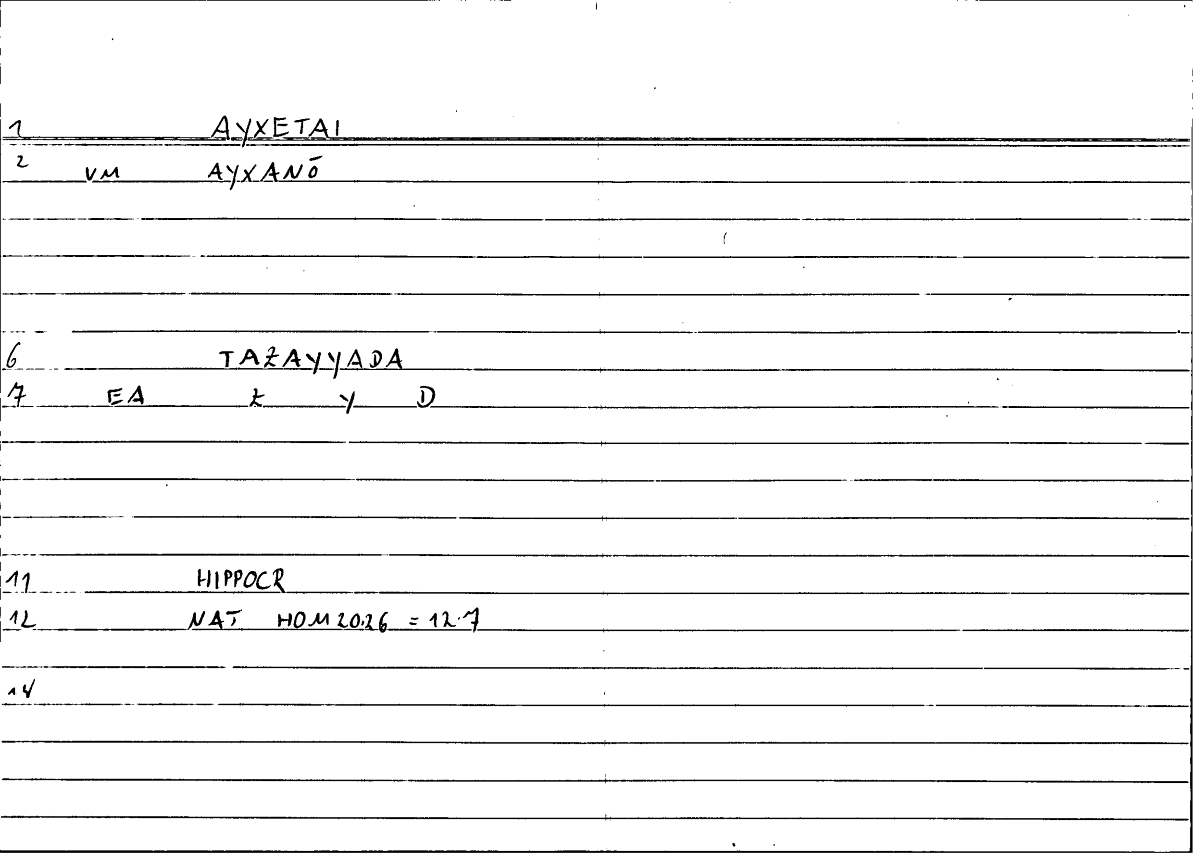 1 AYXETAI
2 VM AYXANŌ
6 TAŻAYYADA
7 EA Ż Y D
11 HIPPOCR
12 NAT HOM 20.26 = 12.7
14